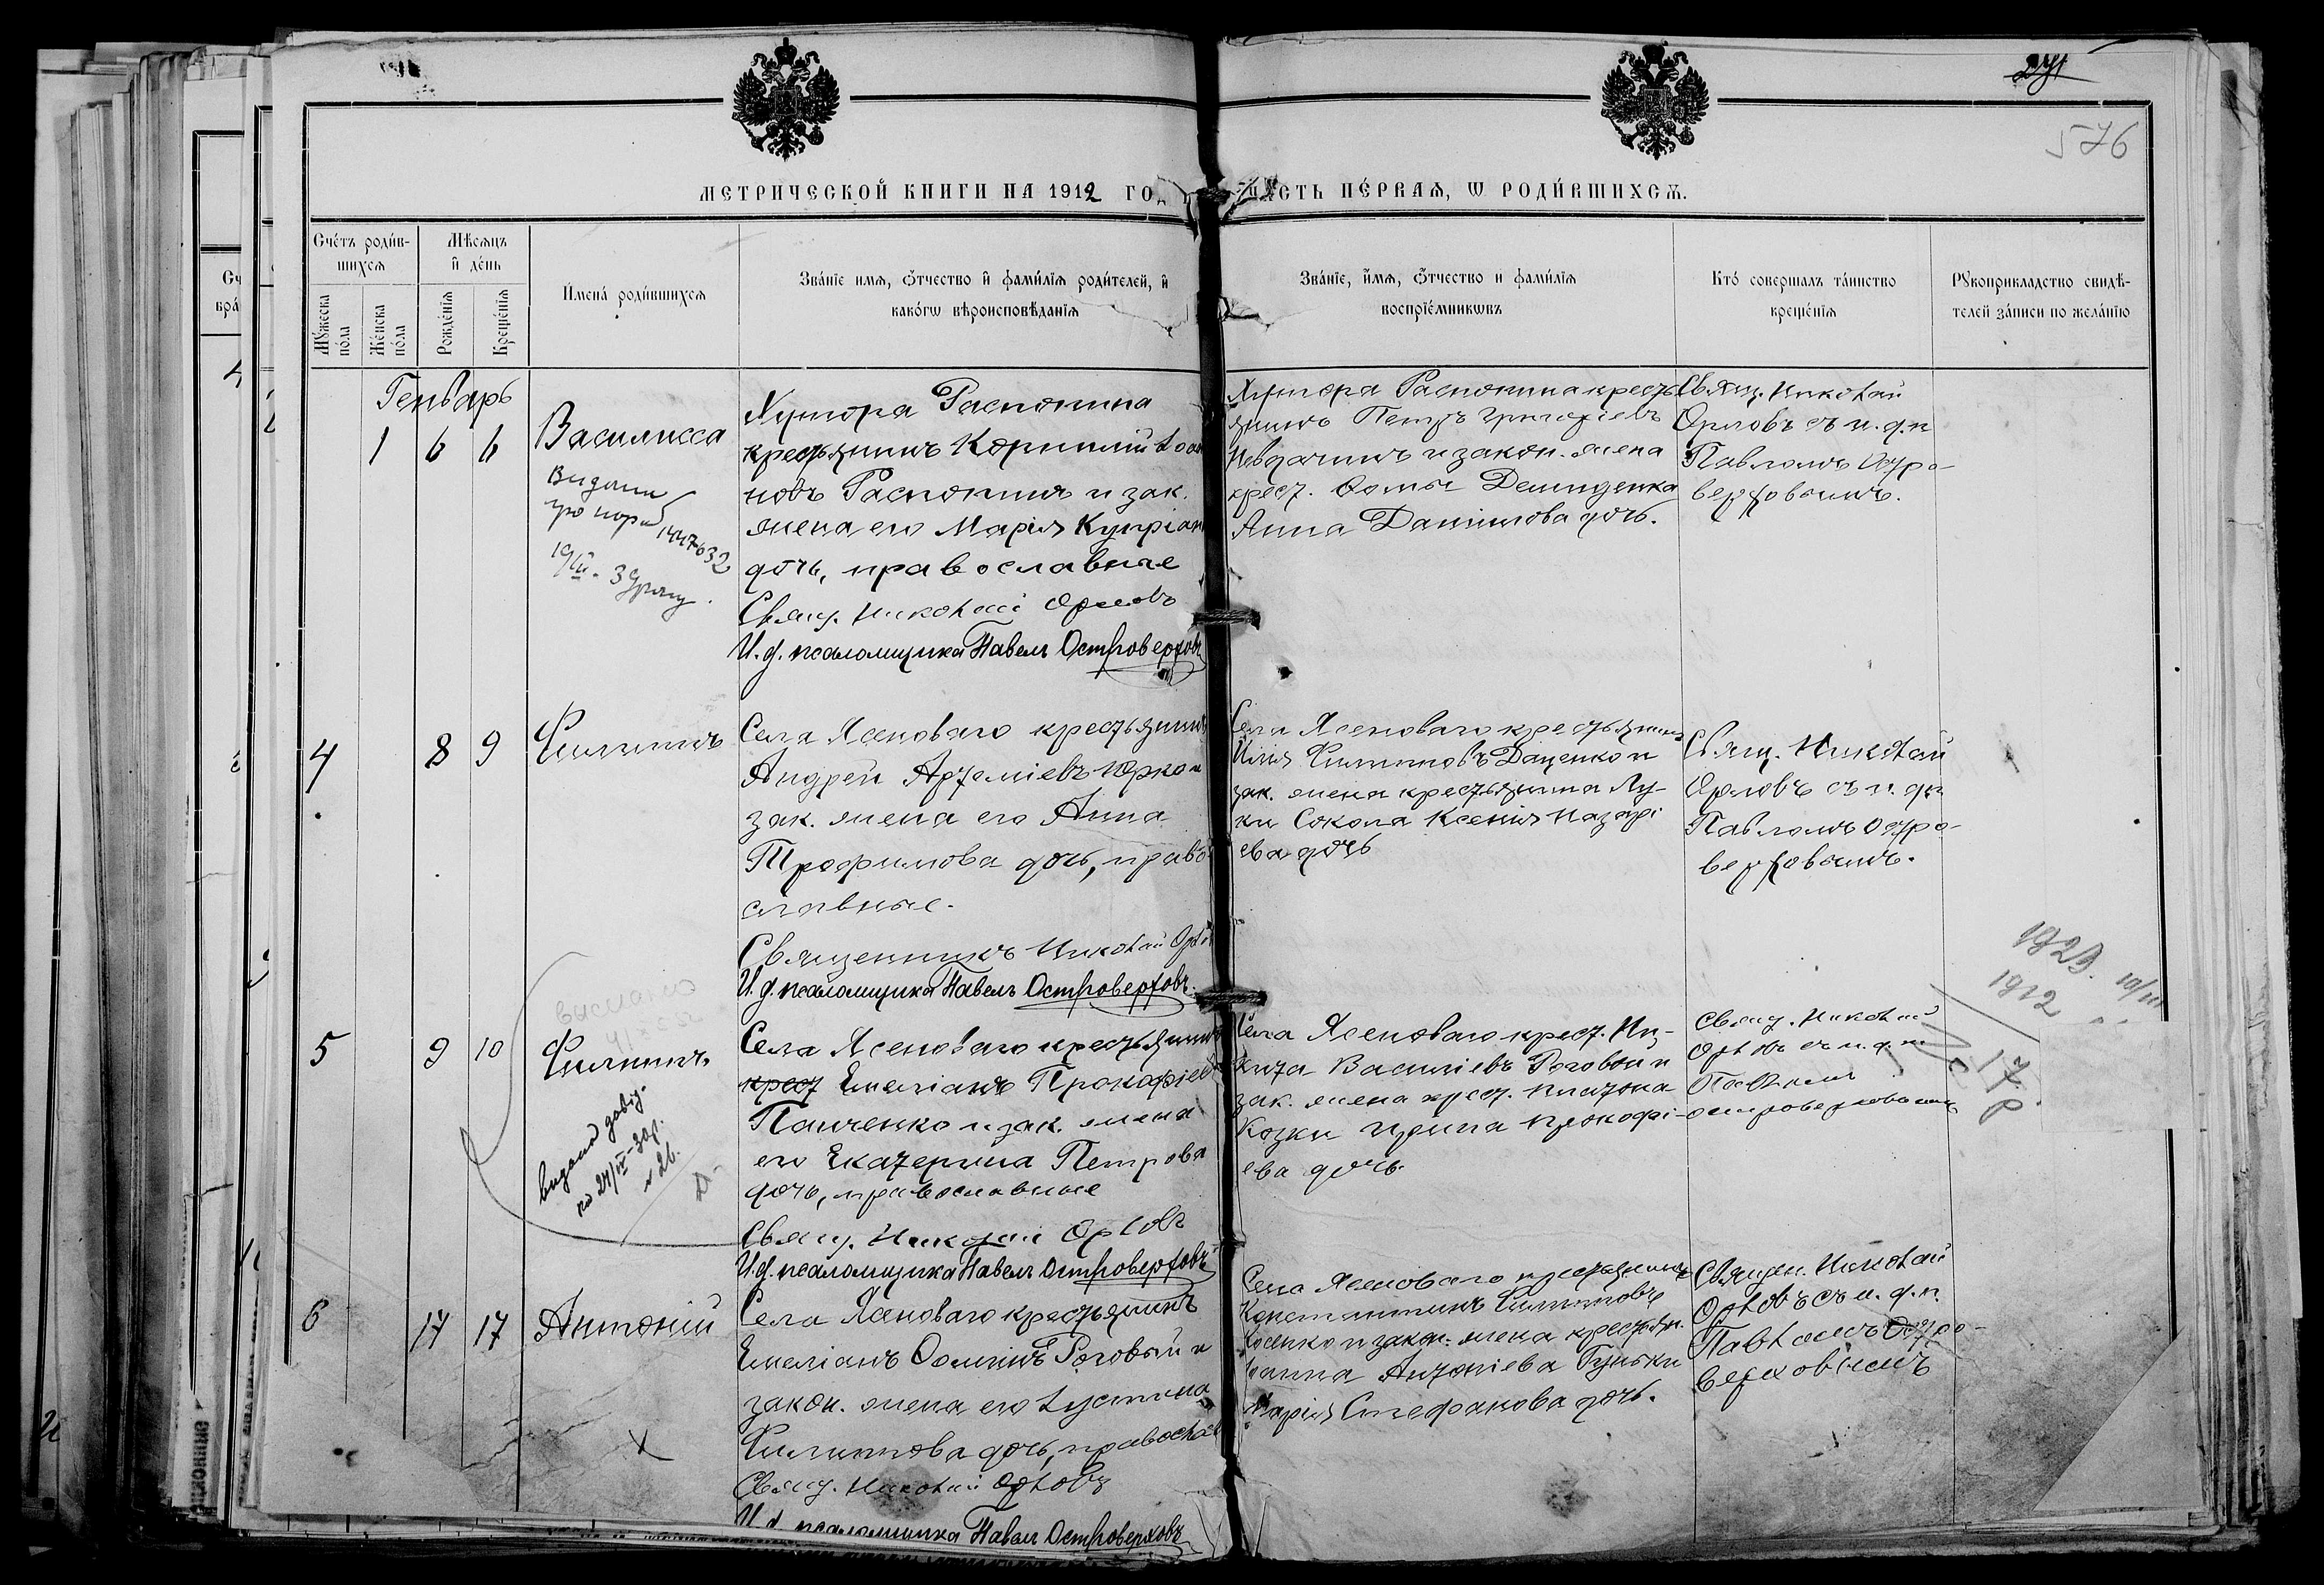 576
МЕТРИЧЕСКОЙ КНИГИ НА 1912 ГОД
ЧАСТЬ ПЕ́РВАѦ, Ѡ РОДИ́ВШИХСѦ.
Сче́тъ роди́в-
шихсѧ
Мѣсѧцъ
и҆ де́нь
Му́жеска по́ла
Же́нска по́ла
Рожде́нїѧ
Креще́нїѧ
И҆мена̀ роди́вшихсѧ
Зва́нїе имѧ, ѻ҆́тчество и҆ фами́лїѧ роди́телей, и҆
како́гѡ вѣроисповѣ́данїѧ
Зва́нїе, и҆́мѧ, ѻ҆́тчество и фами́лїѧ
воспрїе́мникѡвъ
Кто́ совершалъ та́инство
креще́нїѧ
Рꙋкоприкладство свидѣ́-
телей за́писи по жела́нїю
Генварь
1 6 6
Василисса
Хутора Распопина
крестьянинъ Корнилій Іоан
новъ Распопинъ и зак.
жена его Марія Купріан
дочь, православные
Свящ. Николай Орловъ
И.д. псаломщика Павелъ Островерховъ
Хутора Распопина кресть
янинъ Петръ Григоріевъ
и закон. жена
крест. Ѳомы Демиденка
Анна Даниилова дочь.
Свящ. Николай
Орловъ съ и.д.п
Павломъ Остро-
верховымъ.
4 8 9
Филиппъ
Села Ясеноваго крестьянинъ
Андрей Артеміевъ Юрко и
зак. жена его Анна
Трофимова дочь, право
славные.
Священникъ Николай Орло
И.д. псаломщика Павелъ Островерховъ.
Села Ясеноваго крестьянинъ
Илія Филипповъ Даценко и
зак. жена крестьянина Лу-
ки Сокола Ксенія Назарі
ева дочь
Свящ. Николай
Орловъ съ и.дп
Павломъ Остро-
верховымъ.
5 9 10
Филиппъ
видано довід.
Села Ясеноваго крестьянинъ
крест Емеліанъ Прокофіев
Панченко и зак. жена
его Екатерина Петрова
дочь, православные
Свящ. Николай Орловъ
И.д. псаломщика Павелъ Островерховъ
Села Ясеноваго крест. Ни-
кита Василіевъ Роговой и
зак. жена крест. Платона
Козки Ирина Прокофі-
ева дочь
Свящ. Николай
Орловъ съ и.д.п.
Павломъ
Островерховымъ
1923. 10/III
1912
6 17 17
Антоній
Села Ясеноваго крестьянинъ
Емеліанъ Ѳоминъ Роговый и
закон. жена его Іустина
Филиппова дочь, правосла
Свящ. Николай Орловъ
И.д. псаломщика Павелъ Островерховъ
Села Ясеноваго крестьянинъ
Константинъ Филипповъ
и закон. жена крестьян.
Іоанна Антоніева Гуньки
Марія Стефанова дочь.
Священ. Николай
Орловъ съ и.д.п.
Павломъ Остро-
верховымъ